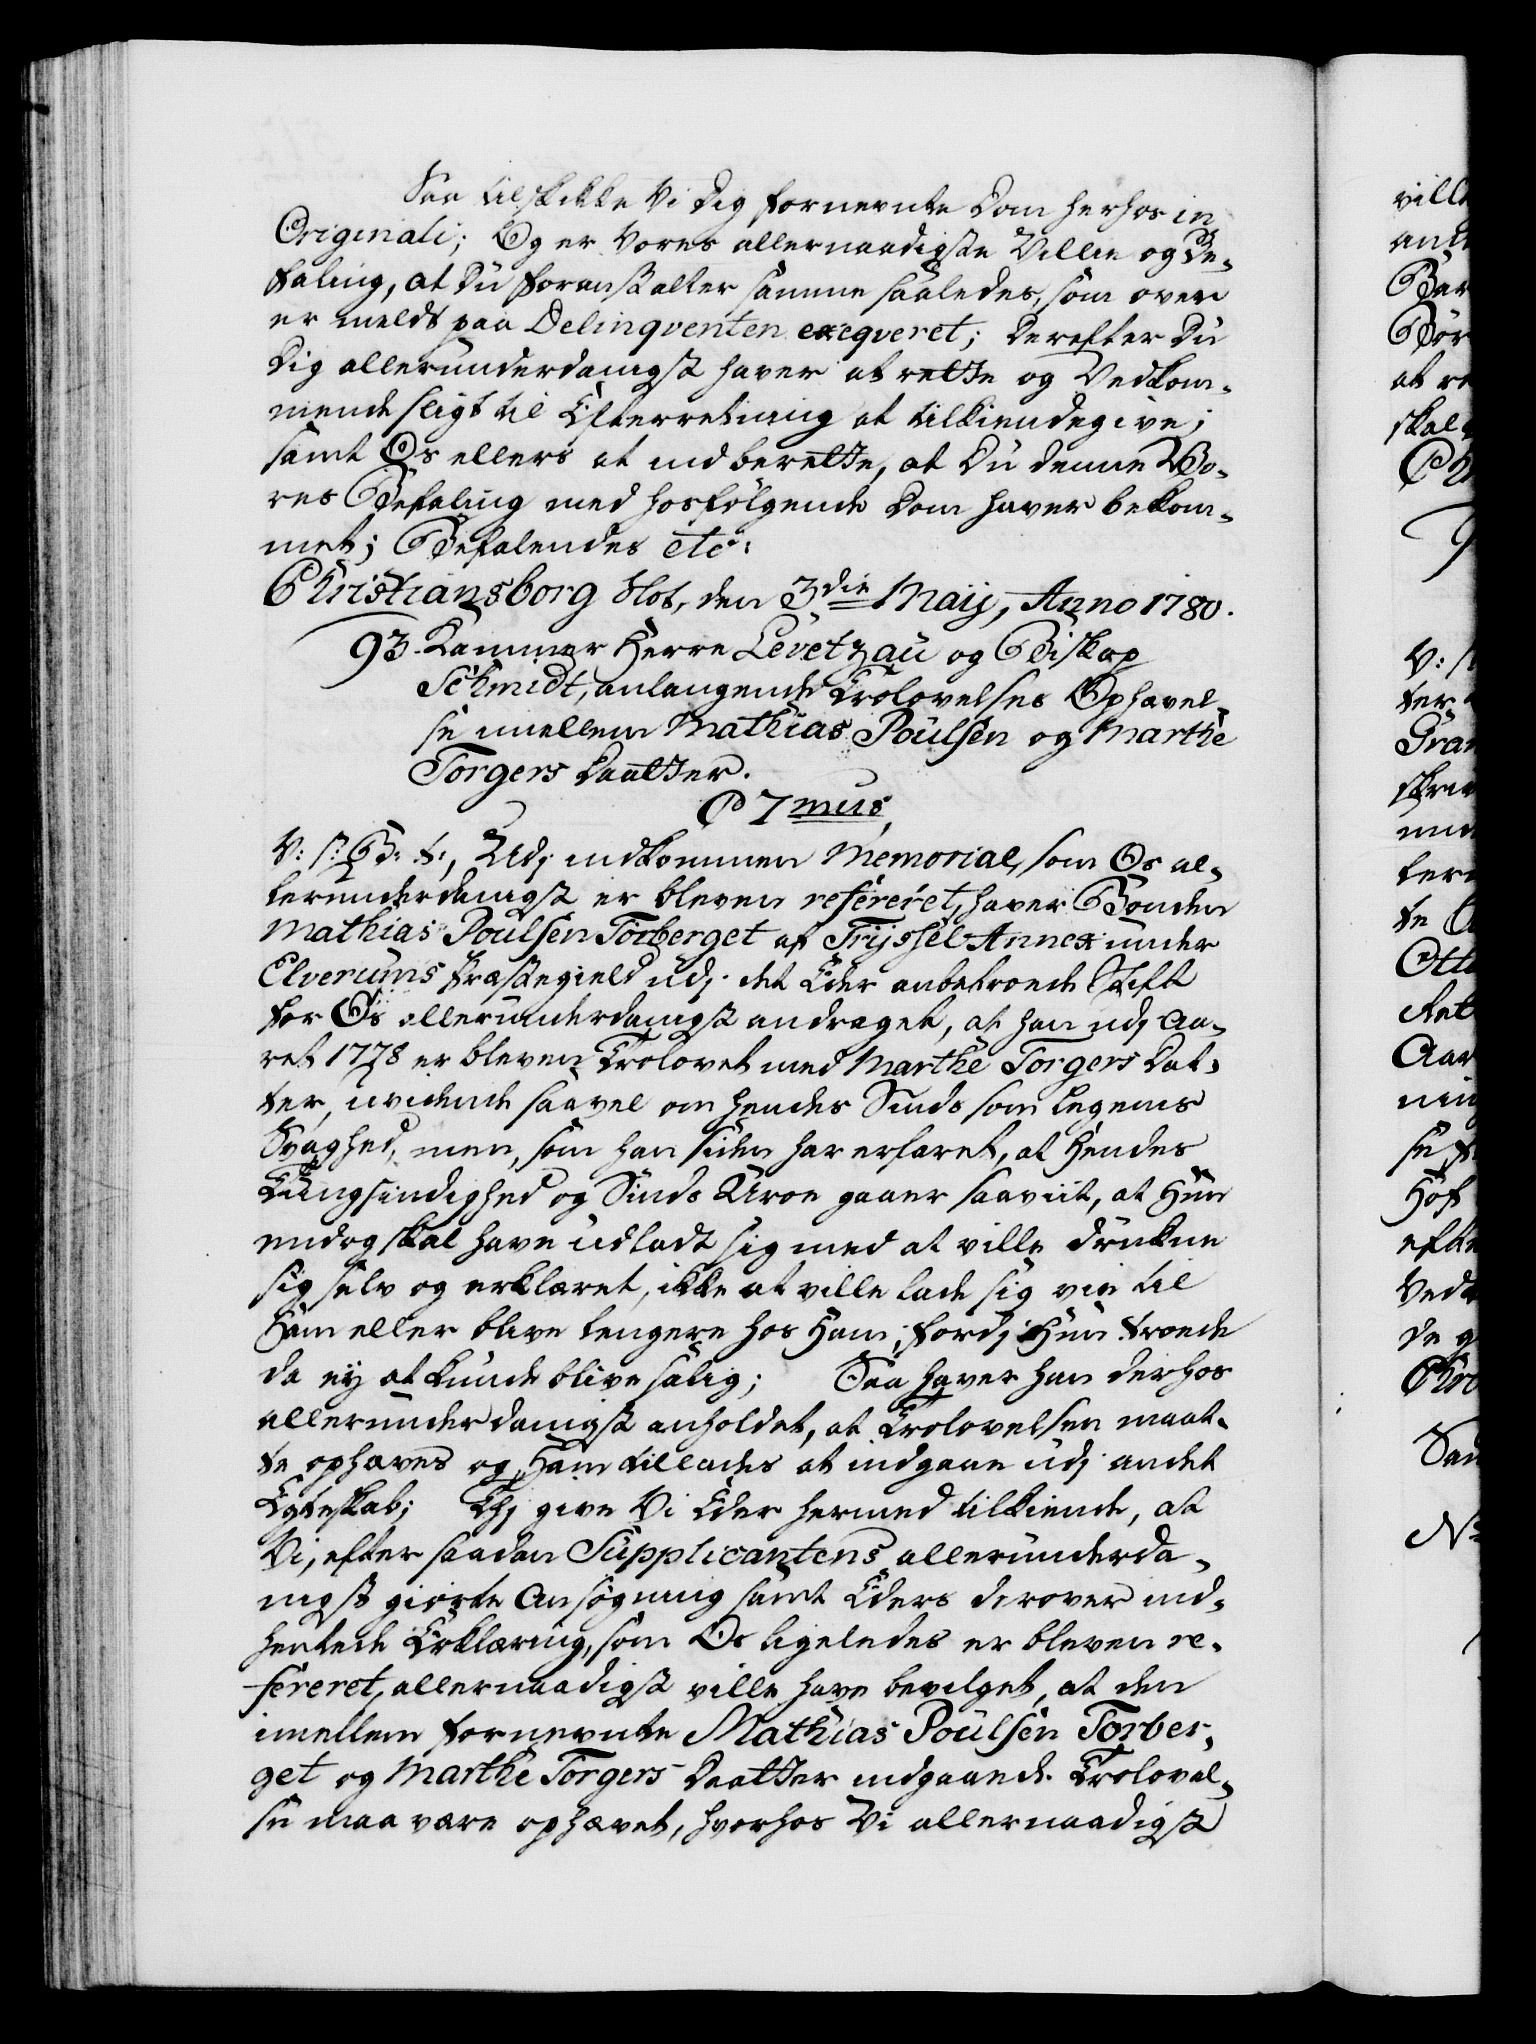 Saa tilskikke Vi Dig fornevnte Dom herhos in
Originali; Og er Vores allernaadigste Villie og Be-
faling, at Du foranstalter samme saaledes, som oven
er meldt paa Delinqventen exeqveret; Derefter Du
Dig allerunderdanigst haver at rette og Vedkom-
mende sligt til Efterretning at tilkiendegive;
samt Os ellers at indberette, at Du denne Vo-
res Befaling med hosfølgende Dom haver bekom-
met; Befalendes etc:
Christiansborg Slot, den 3die Maij, Anno 1780.
93. Kammer Herre Levetzau og Biskop
Schmidt, anlangende Trolovelses Ophævel-
se imellem Mathias Poulsen og Marthe
Torgers Daatter.
C 7mus
V: S: G: T:, Udj indkommen Memorial, som Os al-
lerunderdanigst er bleven refereret, haver Bonden
Mathias Poulsen Torberget af Trijssel Annex under
Elverums Præstegield udj det Eder anbetroede Stift
for Os allerunderdanigst andraget, at han udj Aa-
ret 1778 er bleven Trolovet med Marthe Torgers Dat-
ter, uvidende saavel om hendes Sinds som Legems
Svaghed, men, som han siden har erfaret, at Hendes
Tungsindighed og Sinds Uroe gaaer saaviit, at Hun
endog skal have udladt sig med at ville drukne
sig selv og erklæret, ikke at ville lade sig vie til
Ham eller blive længere hos Ham, fordj Hun troede
da ej at kunde blive salig; Saa haver han derhos
allerunderdanigst anholdet, at Trolovelsen maat-
te ophæves og Ham tillades at indgaae udj andet
Egteskab; Thj give Vi Eder hermed tilkiende, at
Vi, efter saadan Supplicantens allerunderda-
nigst giorte Ansøgning samt Eders derover ind-
hentede Erklæring, som Os ligeledes er bleven re-
fereret, allernaadigst ville have bevilget, at den
imellem fornevnte Mathias Poulsen Torber-
get og Marthe Torgers Daatter indgaaede Trolovel-
se maa være ophævet, hvorhos Vi allernaadigst